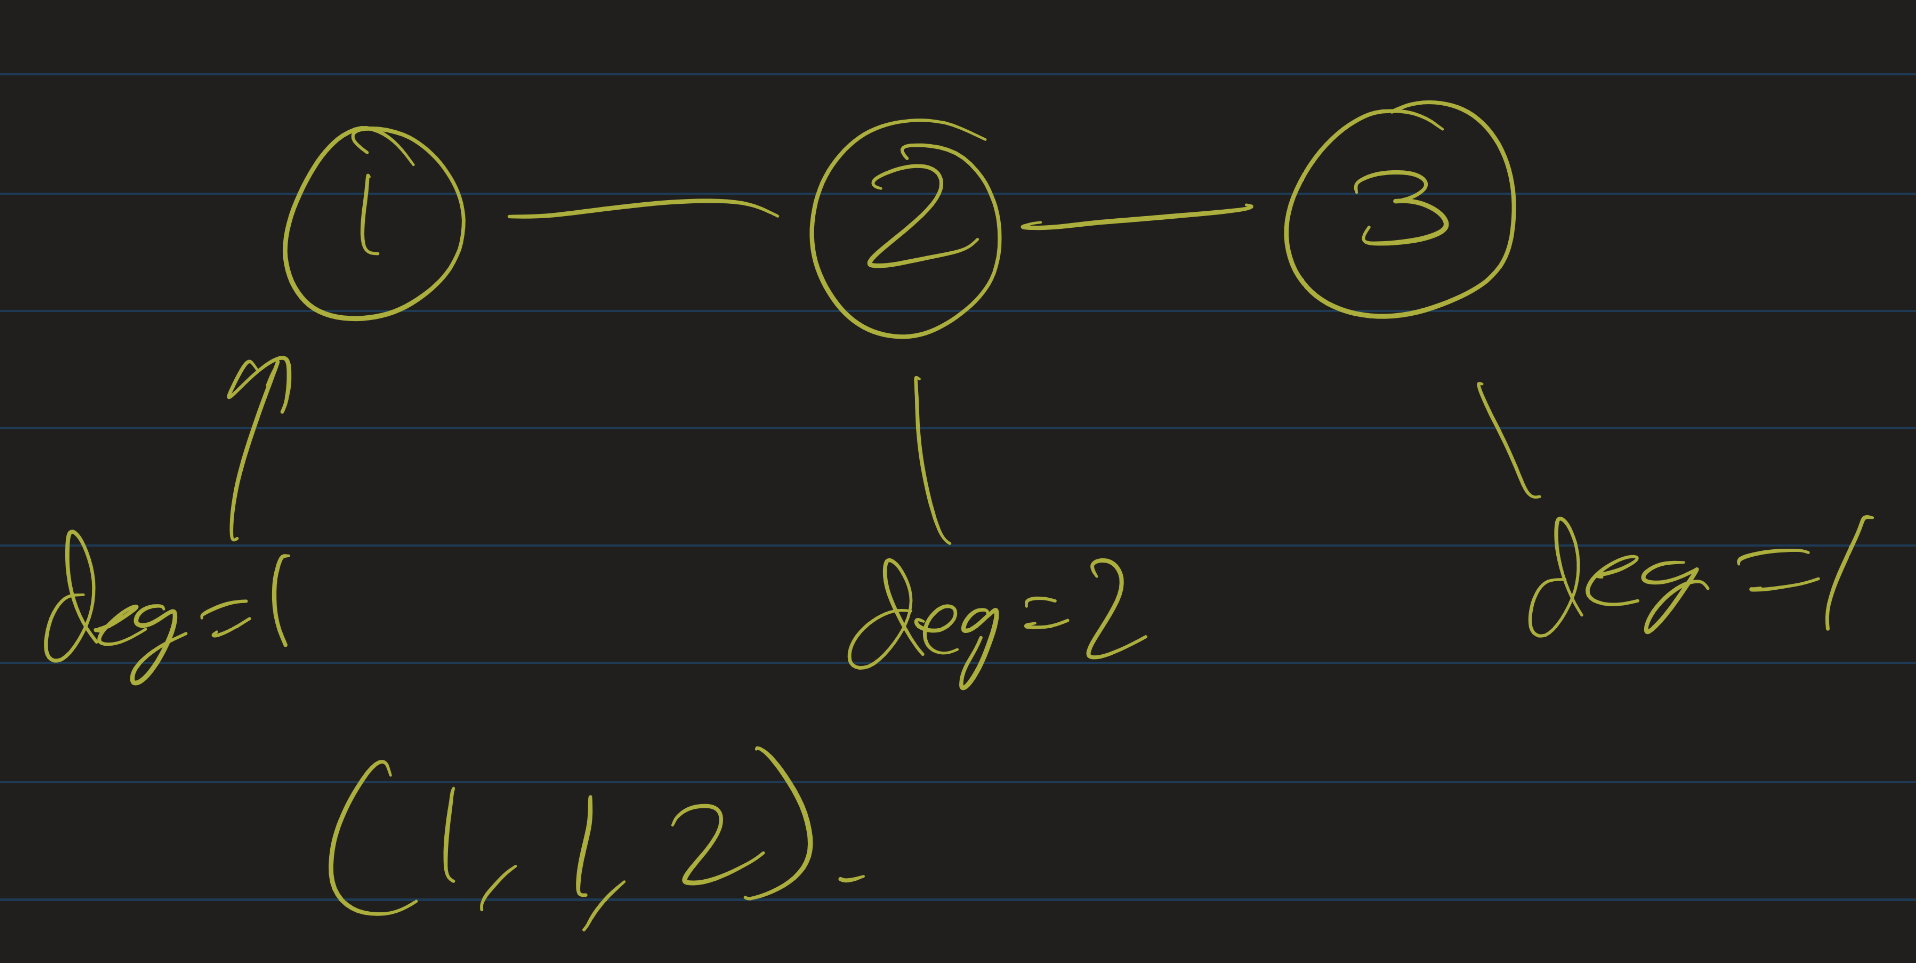 1 2 3
deg=1 deg=2 deg=1
(1, 1, 2).